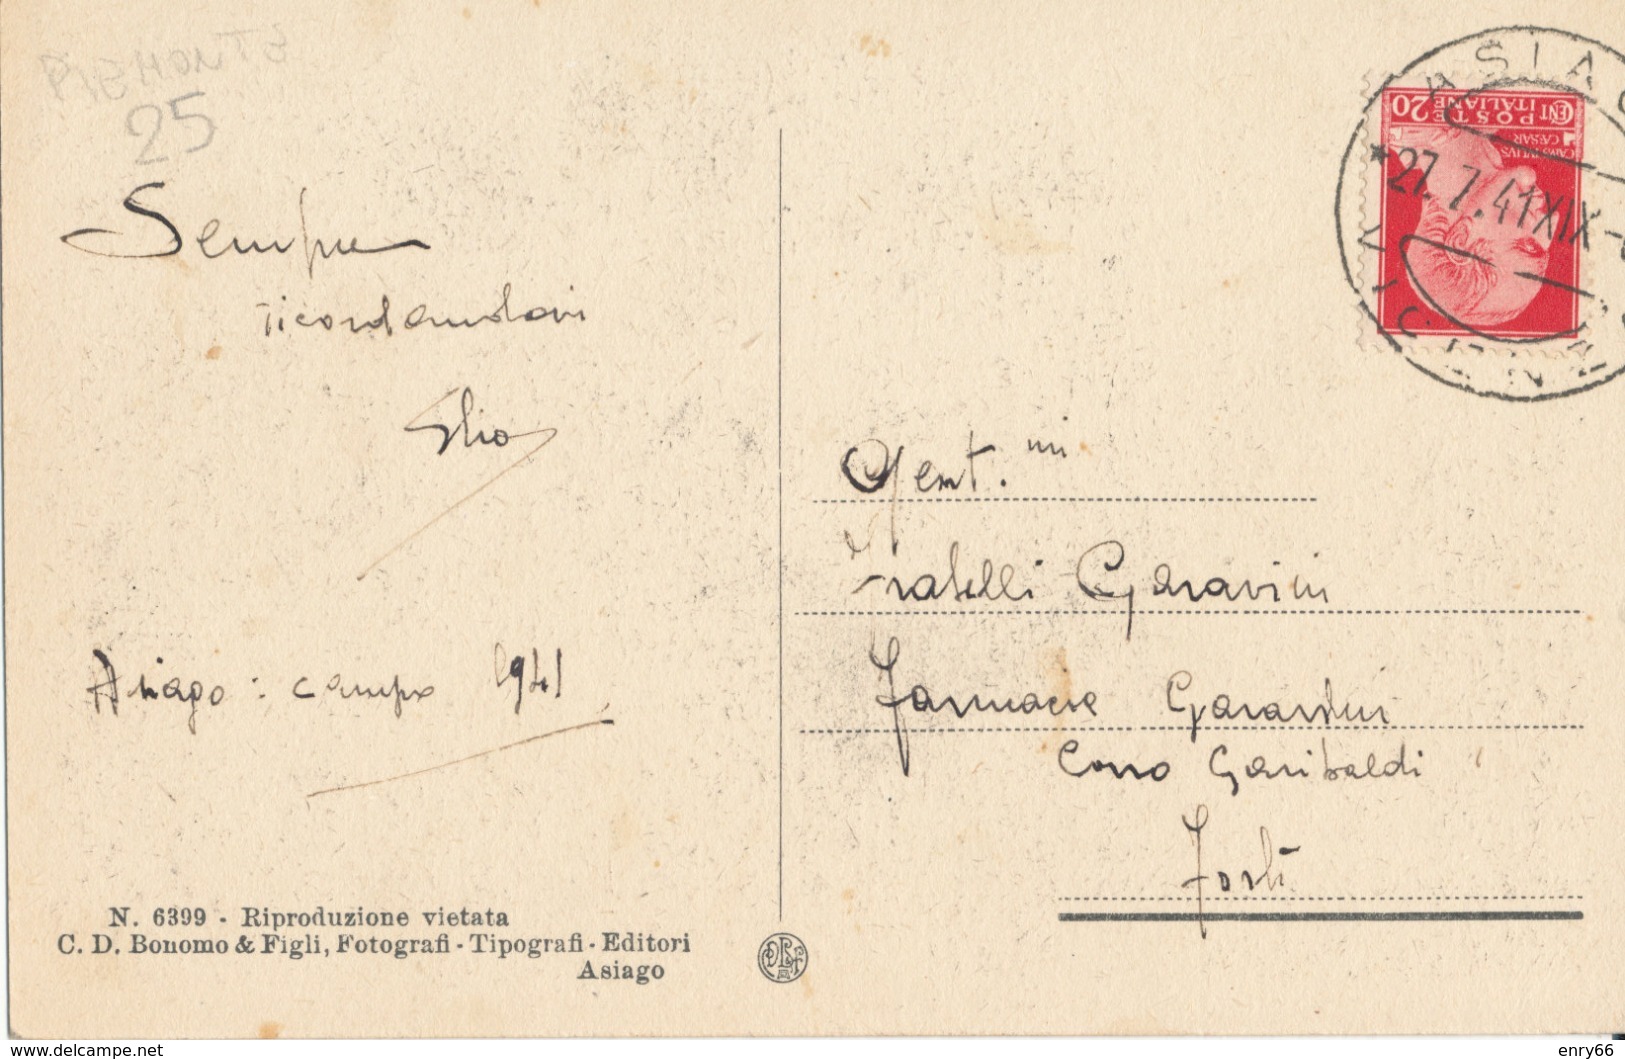 PIEMONTE
25
Sempre
ricordandovi
Elio
Asiago: campo 1941
N. 6399 - Riproduzione vietata
C. D. Bonomo & Figli, Fotografi - Tipografi - Editori
Asiago
ASIAG
* 27.7.41 XIX -
VICENZA
CENT 20
POSTE
ITALIANE
CAIVS IVLIVS
CÆSAR
Gent.mi
Fratelli Garavini
Farmacie
Corso Garibaldi
Forlì
www.delcampe.net
enry66